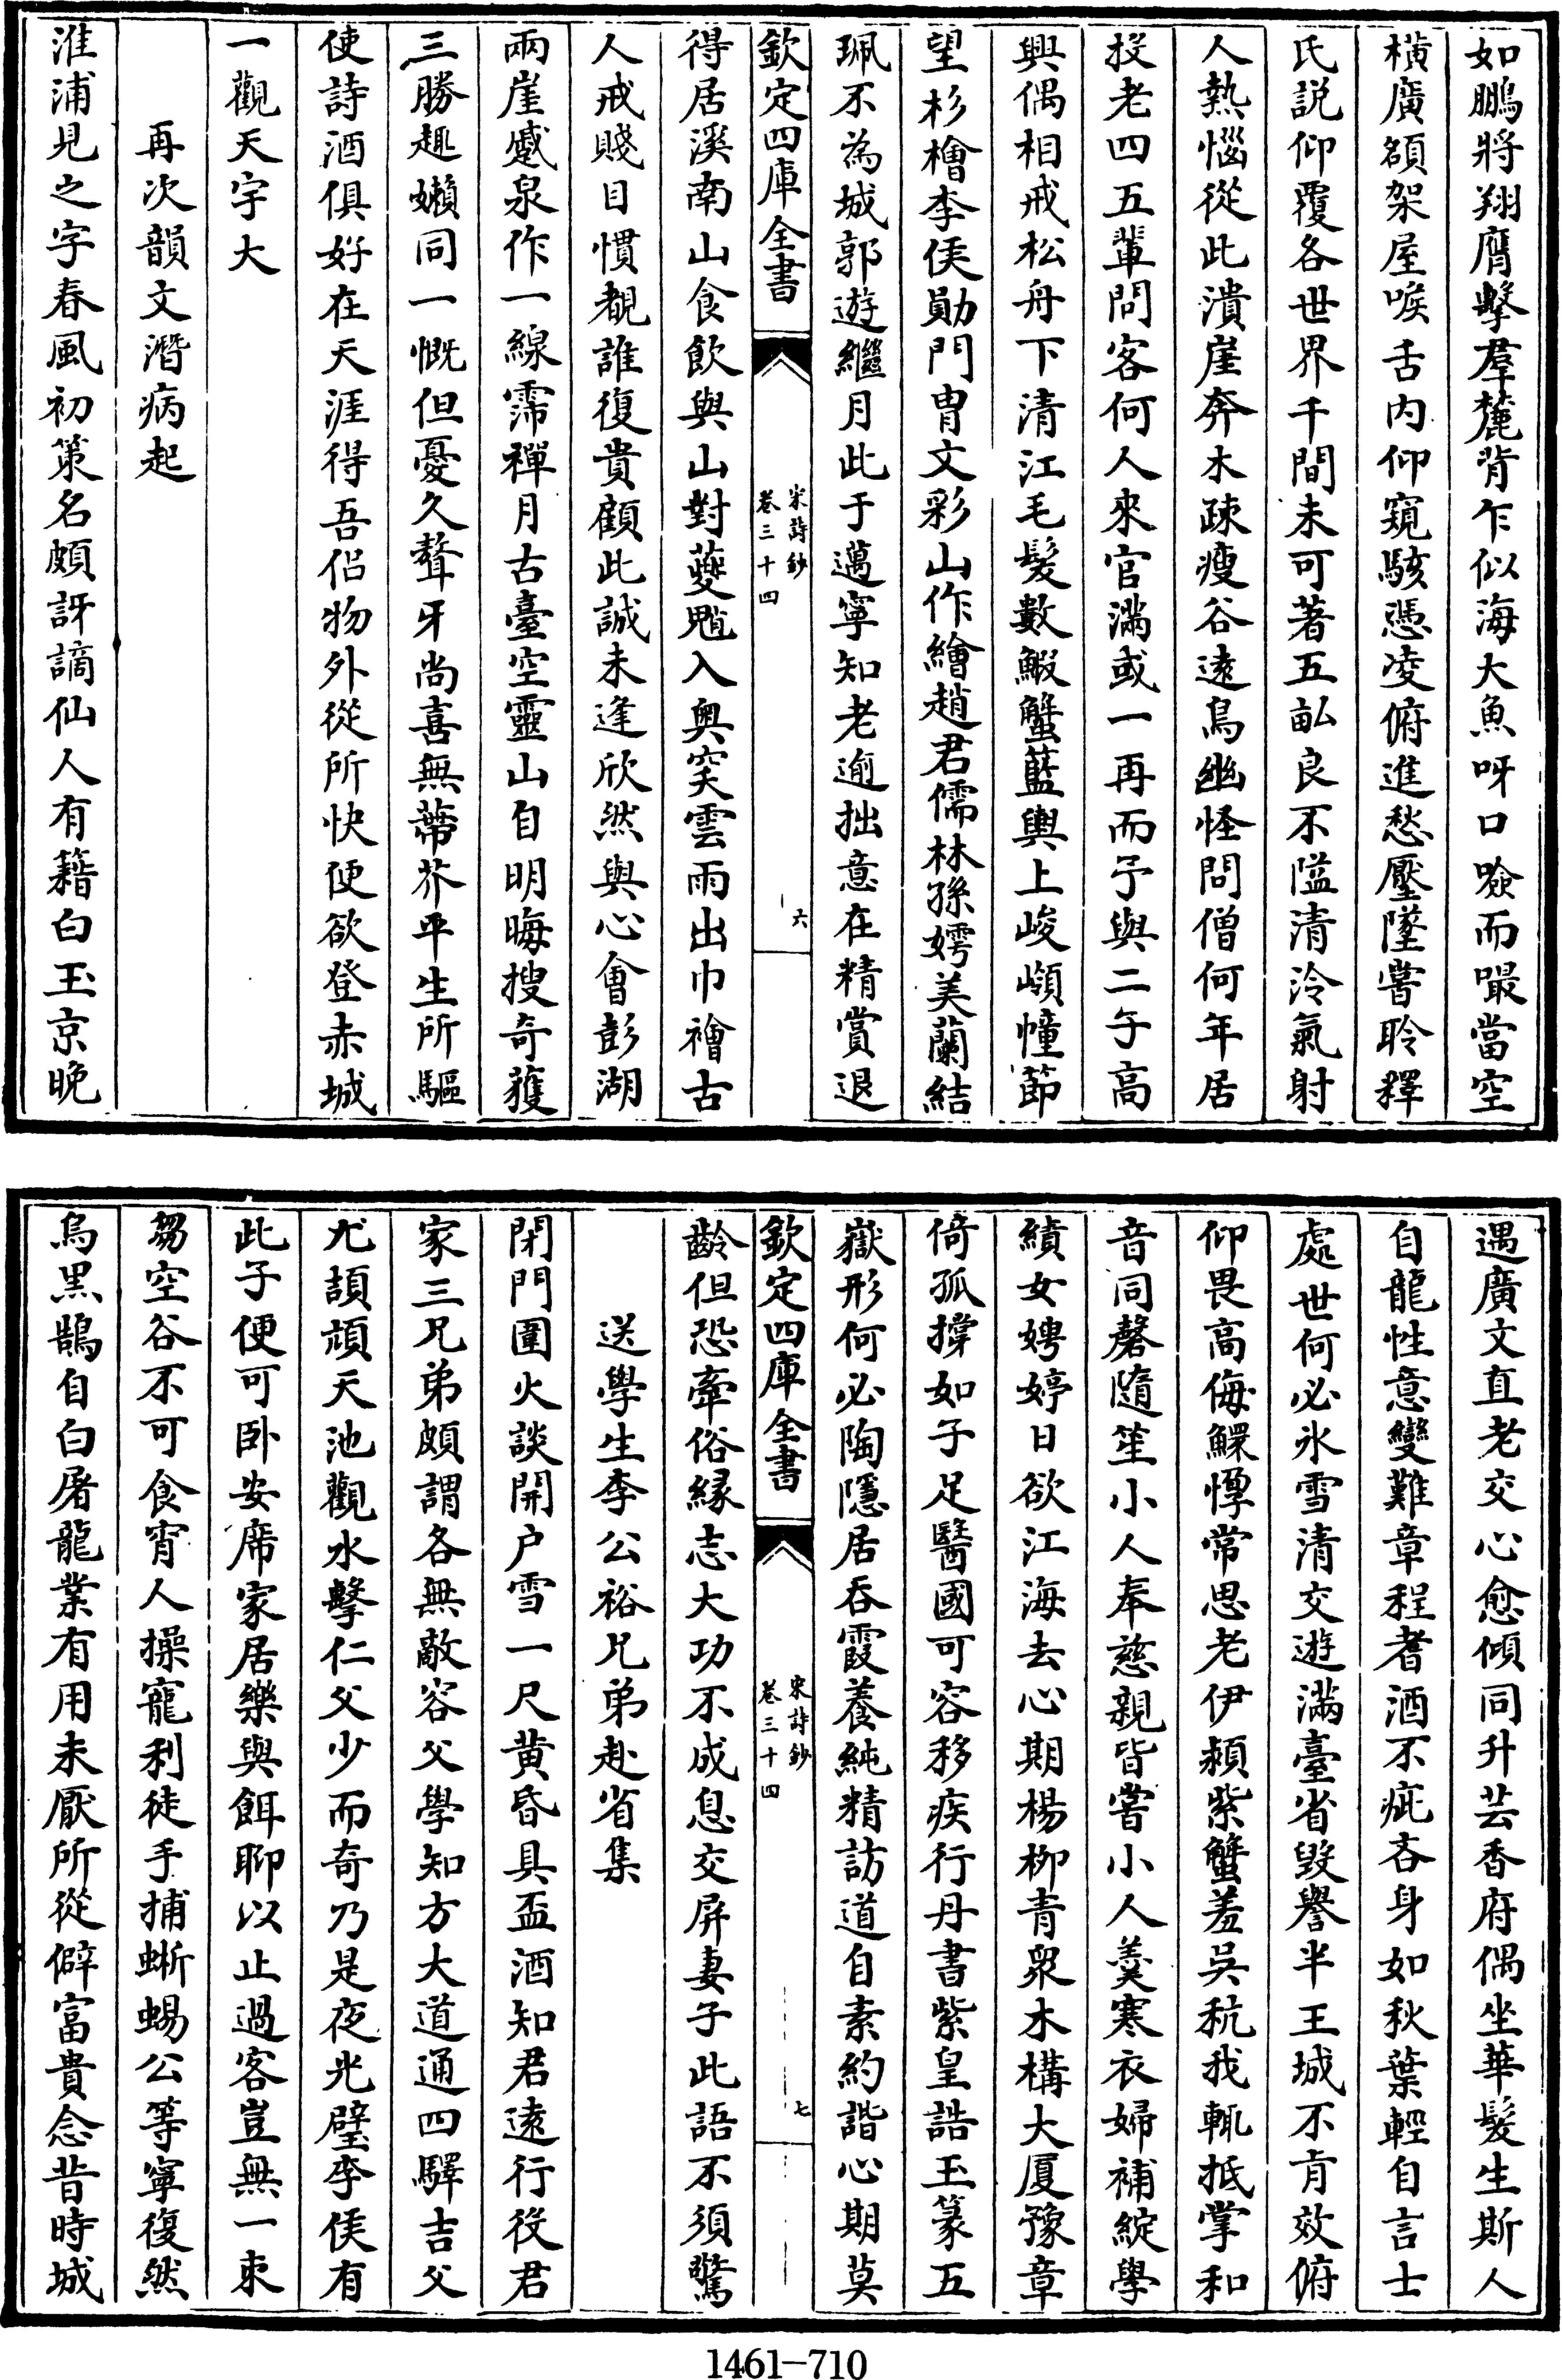 如鵬將翔膺擊羣麓背乍似海大魚呀口噞而嘬當空
横廣額架屋喉舌内仰窺駭憑凌俯進愁壓墜嘗聆釋
氏説仰覆各世界千間未可著五畆良不隘清泠氣射
人熱惱從此潰崖奔木疎瘦谷遠鳥幽怪問僧何年居
投老四五輩問客何人來官滿或一再而予與二午高
興偶相戒松舟下清江毛髮數鰕蟹藍輿上峻嶺幢節
望杉檜李侯勛門胄文彩山作繪趙君儒林孫嫮美蘭結
珮不為城郭遊繼月此于邁寧知老逾拙意在精賞退
欽定四庫全書
宋詩鈔
卷三十四
六
得居溪南山食飲與山對夔魖入奥突雲雨出巾襘古
人戒賤目慣覩誰復貴顧此誠未逢欣然與心會彭湖
兩崖蹙泉作一線霈禪月古臺空靈山自明晦搜奇獲
三勝趣嬾同一慨但憂久聱牙尚喜無蔕芥平生所驅
使詩酒俱好在天涯得吾侣物外從所快便欲登赤城
一觀天宇大
再次韻文潛病起
淮浦見之字春風初策名頗訝謫仙人有籍白玉京晚
遇廣文直老交心愈傾同升芸香府偶坐華髮生斯人
自龍性意變難章程耆酒不疵吝身如秋葉輕自言士
處世何必氷雪清交遊滿臺省毀譽半王城不肯效俯
仰畏高侮鰥惸常思老伊潁紫蟹羞吳秔我輒抵掌和
音同磬隨笙小人奉慈親皆嘗小人羮寒衣婦補綻學
績女娉婷日欲江海去心期楊柳青衆木構大厦豫章
倚孤撑如子足醫國可容移疾行丹書紫皇誥玉篆五
嶽形何必陶隱居吞霞養純精訪道自素約諧心期莫
欽定四庫全書
宋詩鈔
卷三十四
七
齡但恐牽俗緣志大功不成息交屏妻子此語不須驚
送學生李公裕兄弟赴省集
閉門圍火談開户雪一尺黄昏具盃酒知君遠行役君
家三兄弟頗謂各無敵容父學知方大道通四驛吉父
尤頡頏天池觀水擊仁父少而奇乃是夜光璧李侯有
此子便可卧安席家居樂與餌聊以止過客豈無一束
芻空谷不可食宵人操寵利徒手捕蜥蜴公等寧復然
烏黒鵠自白屠龍業有用未厭所從僻富貴念昔時城
1461-710